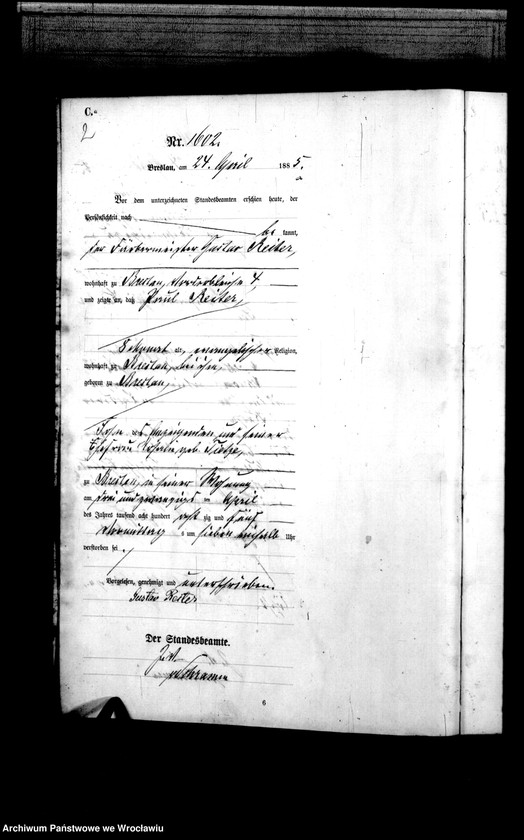 C.
2
Nr. 1602.
Breslau, am 24. April 1885.
Vor dem unterzeichneten Standesbeamten erschien heute, der
Persönlichkeit nach
be kannt,
der Färbermeister Gustav Reiter,
wohnhaft zu Breslau, 4,
und zeigte an, daß Paul Reiter,
5 Monat alt, evangelischer Religion,
wohnhaft zu Breslau, bei ihm,
geboren zu Breslau,
Sohn des Anzeigenden und seiner
Ehefrau geb. Tietze,
zu Breslau, in seiner Wohnung
am drei und zwanzigsten April
des Jahres tausend acht hundert acht zig und fünf
Vormittags um sieben einhalb Uhr
verstorben sei.
Vorgelesen, genehmigt und unterschrieben.
Gustav Reiter
Der Standesbeamte.
J. V.
6
Archiwum Państwowe we Wrocławiu